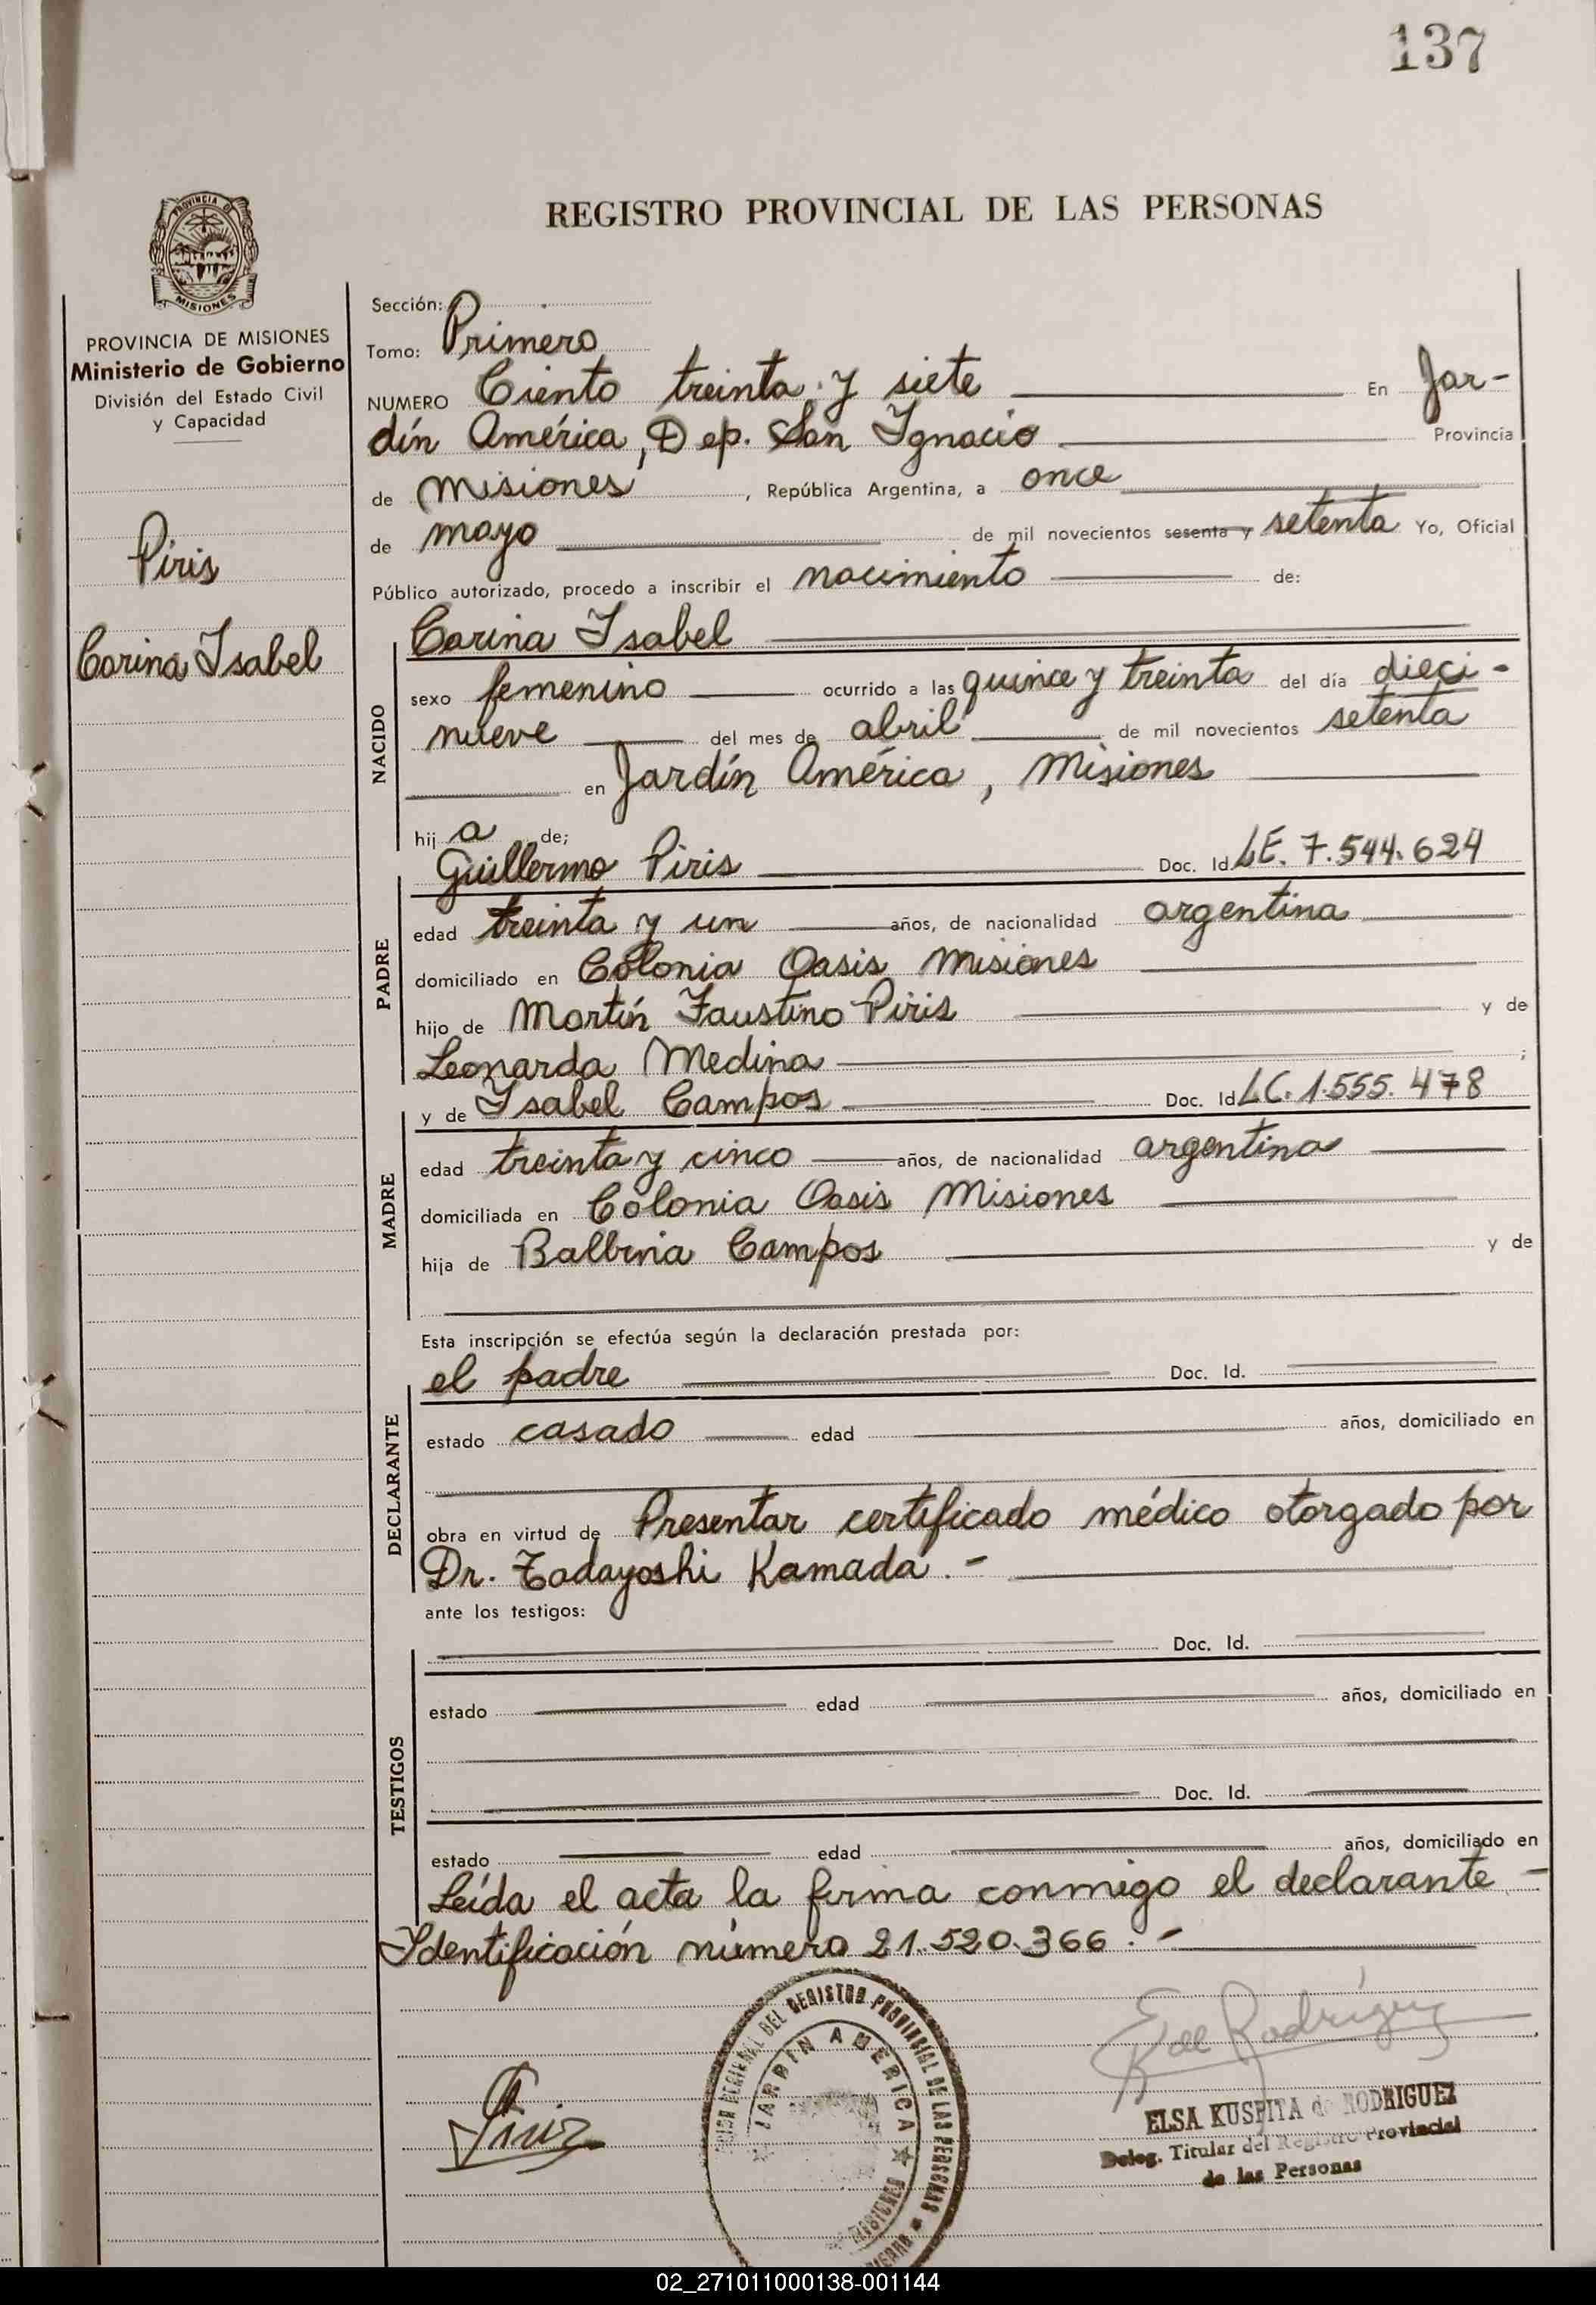 137
PROVINCIA DE
MISIONES
REGISTRO PROVINCIAL DE LAS PERSONAS
PROVINCIA DE MISIONES
Ministerio de Gobierno
División del Estado Civil
y Capacidad
Piris
Corina Isabel
Sección:
Tomo: Primero
NUMERO Ciento treinta y siete En Jar-
dín América, Dep. San Ignacio Provincia
de Misiones, República Argentina, a once
de mayo de mil novecientos sesenta y setenta Yo, Oficial
Público autorizado, procedo a inscribir el nacimiento de:
Corina Isabel
NACIDO
sexo femenino ocurrido a las quince y treinta del día dieci-
nueve del mes de abril de mil novecientos setenta
en Jardín América, Misiones
hij a de;
Guillermo Piris Doc. Id. LE. 7.544.624
PADRE
edad treinta y un años, de nacionalidad argentina
domiciliado en Colonia Oasis Misiones
hijo de Martín Faustino Piris y de
Leonarda Medina ;
y de Isabel Campos Doc. Id. LC. 1.555.478
MADRE
edad treinta y cinco años, de nacionalidad argentina
domiciliada en Colonia Oasis Misiones
hija de Balbina Campos y de
Esta inscripción se efectúa según la declaración prestada por:
el padre Doc. Id.
DECLARANTE
estado casado edad años, domiciliado en
obra en virtud de Presentar certificado médico otorgado por
Dr. Tadayoshi Kamada.-
ante los testigos:
Doc. Id.
TESTIGOS
estado edad años, domiciliado en
Doc. Id.
estado edad años, domiciliado en
Leída el acta la firma conmigo el declarante-
Identificación número 21.520.366.-
REGIONAL DEL REGISTRO PROVINCIAL DE LAS PERSONAS
JARDIN AMERICA
MISIONES
Piris
Rodriguez
ELSA KUSPITA de RODRIGUEZ
Deleg. Titular del Registro Provincial
de las Personas
02_271011000138-001144